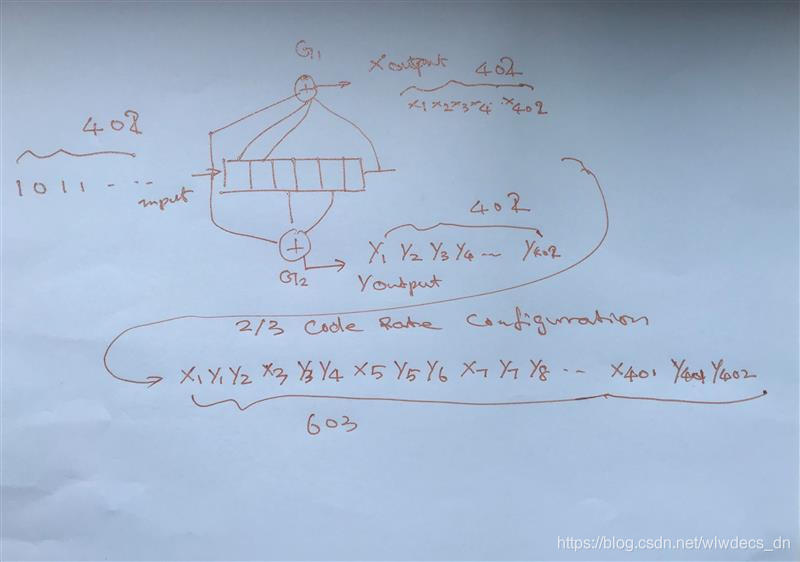 G1
X output 402
x1 x2 x3 x4 .. x402
402
1 0 1 1 .. ..
input
402
Y1 Y2 Y3 Y4 ... Y402
G2
Y output
2/3 Code Rate Configuration
X1 Y1 Y2 X3 Y3 Y4 X5 Y5 Y6 X7 Y7 Y8 ... X401 Y401 Y402
603
https://blog.csdn.net/wlwdecs_dn